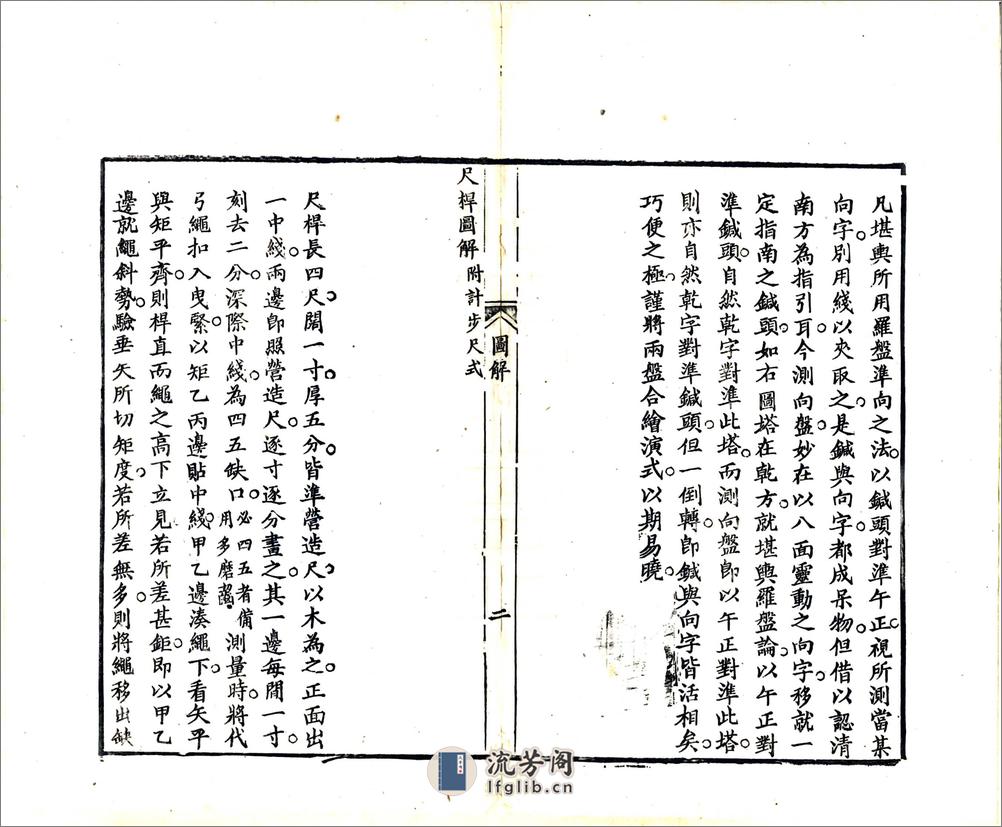 凡堪輿所用羅盤準向之法以鍼頭對準午正視所測當某
向字別用綫以夾取之是鍼與向字都成呆物但借以認清
南方為指引耳今測向盤妙在以八面靈動之向字移就一
定指南之鍼頭如右圖塔在乾方就堪輿羅盤論以午正對
準鍼頭自然乾字對準此塔而測向盤卽以午正對準此塔
則亦自然乾字對準鍼頭但一倒轉卽鍼與向字皆活相矣
巧便之極謹將兩盤合繪演式以期易曉
圖解
二
尺桿圖解 附計步尺式
尺桿長四尺闊一寸厚五分皆準營造尺以木為之正面出
一中綫兩邊卽照營造尺逐寸逐分畫之其一邊每間一寸
刻去二分深際中綫為四五缺口必四五者備用多磨齧測量時將代
弓繩扣入曳緊以矩乙丙邊貼中綫甲乙邊湊繩下看矢平
與矩平齊則桿直而繩之高下立見若所差甚鉅即以甲乙
邊就繩斜勢驗垂矢所切矩度若所差無多則將繩移出缺
流芳阁
lfglib.cn